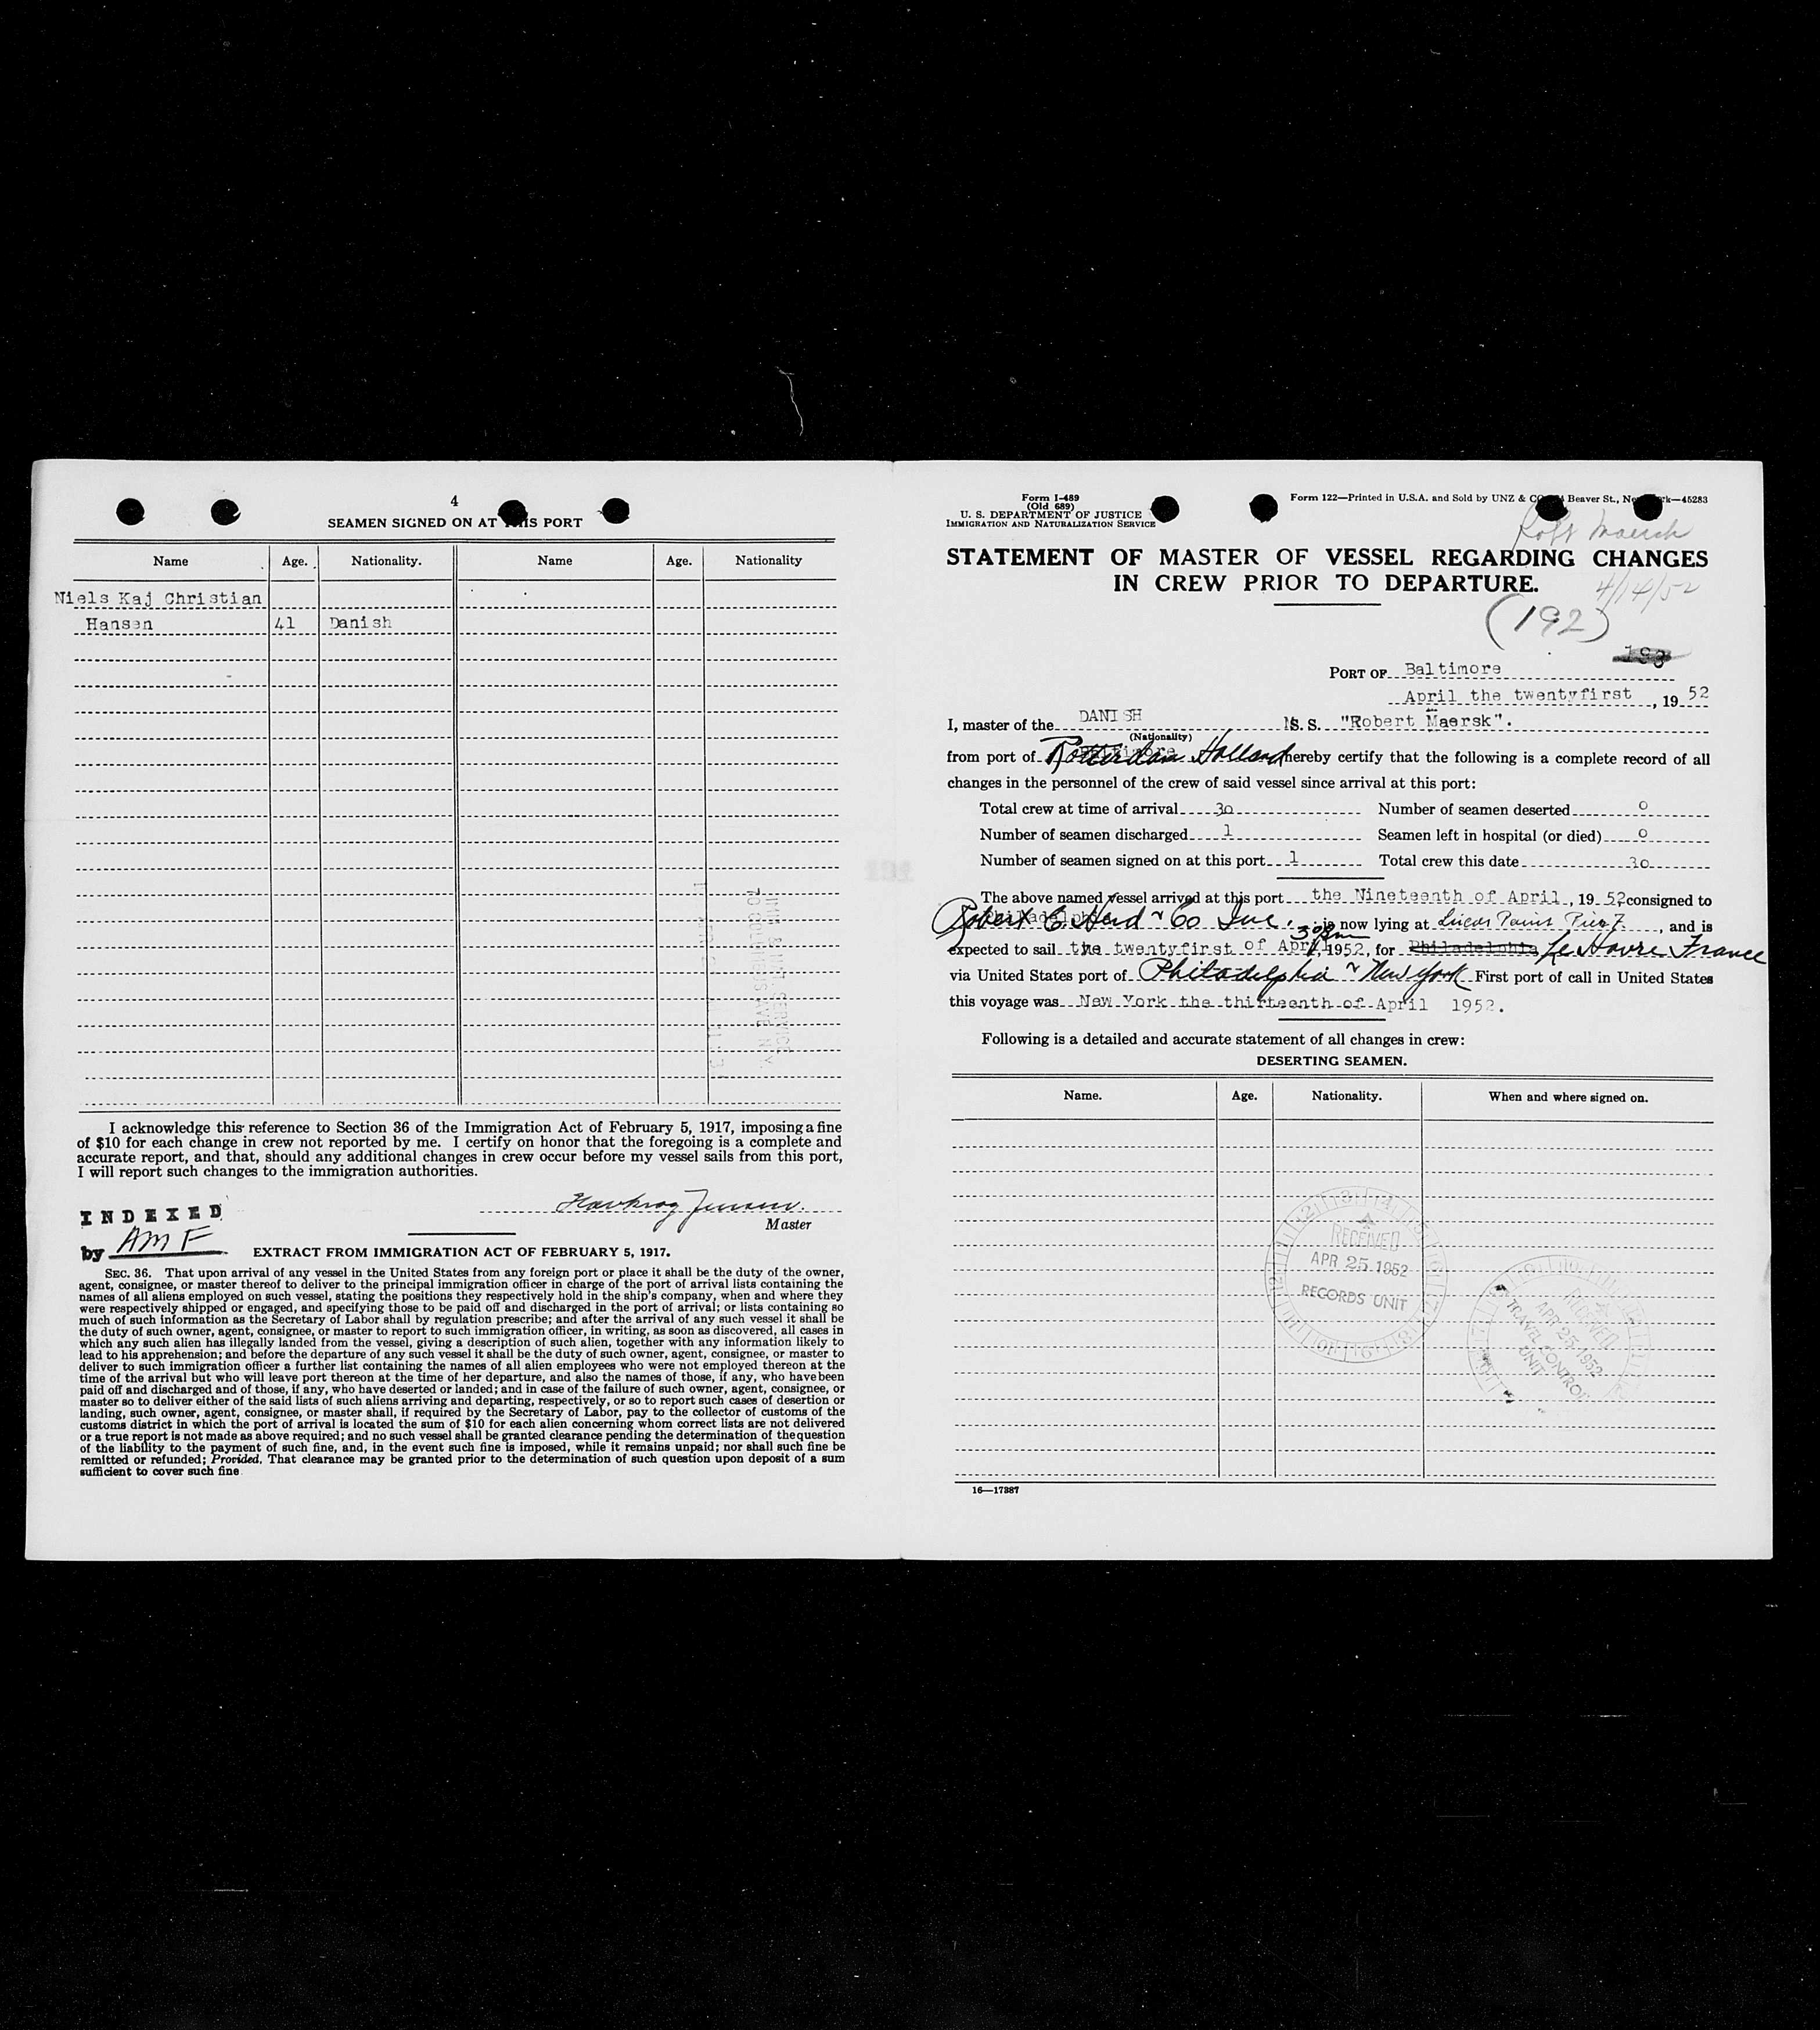 4
SEAMEN SIGNED ON AT THIS PORT
Name Age. Nationality. Name Age. Nationality
Niels Kaj Christian
Hansen 41 Danish
I acknowledge this reference to Section 36 of the Immigration Act of February 5, 1917, imposing a fine
of $10 for each change in crew not reported by me. I certify on honor that the foregoing is a complete and
accurate report, and that, should any additional changes in crew occur before my vessel sails from this port,
I will report such changes to the immigration authorities.
Jensen.
Master
INDEXED
by AMF
EXTRACT FROM IMMIGRATION ACT OF FEBRUARY 5, 1917.
SEC. 36. That upon arrival of any vessel in the United States from any foreign port or place it shall be the duty of the owner,
agent, consignee, or master thereof to deliver to the principal immigration officer in charge of the port of arrival lists containing the
names of all aliens employed on such vessel, stating the positions they respectively hold in the ship's company, when and where they
were respectively shipped or engaged, and specifying those to be paid off and discharged in the port of arrival; or lists containing so
much of such information as the Secretary of Labor shall by regulation prescribe; and after the arrival of any such vessel it shall be
the duty of such owner, agent, consignee, or master to report to such immigration officer, in writing, as soon as discovered, all cases in
which any such alien has illegally landed from the vessel, giving a description of such alien, together with any information likely to
lead to his apprehension; and before the departure of any such vessel it shall be the duty of such owner, agent, consignee, or master to
deliver to such immigration officer a further list containing the names of all alien employees who were not employed thereon at the
time of the arrival but who will leave port thereon at the time of her departure, and also the names of those, if any, who have been
paid off and discharged and of those, if any, who have deserted or landed; and in case of the failure of such owner, agent, consignee, or
master so to deliver either of the said lists of such aliens arriving and departing, respectively, or so to report such cases of desertion or
landing, such owner, agent, consignee, or master shall, if required by the Secretary of Labor, pay to the collector of customs of the
customs district in which the port of arrival is located the sum of $10 for each alien concerning whom correct lists are not delivered
or a true report is not made as above required; and no such vessel shall be granted clearance pending the determination of the question
of the liability to the payment of such fine, and, in the event such fine is imposed, while it remains unpaid; nor shall such fine be
remitted or refunded; Provided, That clearance may be granted prior to the determination of such question upon deposit of a sum
sufficient to cover such fine.
Form I-489
(Old 689)
U. S. DEPARTMENT OF JUSTICE
IMMIGRATION AND NATURALIZATION SERVICE
Form 122—Printed in U.S.A. and Sold by UNZ & CO. Beaver St., New York—45283
Robt Maersk
STATEMENT OF MASTER OF VESSEL REGARDING CHANGES
IN CREW PRIOR TO DEPARTURE.
4/14/52
(192)
193
PORT OF Baltimore
April the twentyfirst, 19 52
I, master of the DANISH M.S. "Robert Maersk".
(Nationality)
from port of Rotterdam Holland hereby certify that the following is a complete record of all
changes in the personnel of the crew of said vessel since arrival at this port:
Total crew at time of arrival 30 Number of seamen deserted 0
Number of seamen discharged 1 Seamen left in hospital (or died) 0
Number of seamen signed on at this port 1 Total crew this date 30
The above named vessel arrived at this port the Nineteenth of April, 19 52 consigned to
Robert C. Herd & Co Inc. is now lying at Lucas Point Pier 7, and is
5 pm
expected to sail the twentyfirst of April, 1952, for Philadelphia Le Havre France
via United States port of Philadelphia & New York First port of call in United States
this voyage was New York the thirteenth of April 1952.
Following is a detailed and accurate statement of all changes in crew:
DESERTING SEAMEN.
Name. Age. Nationality. When and where signed on.
RECEIVED
APR 25 1952
RECORDS UNIT
RECEIVED
APR 25 1952
TRAVEL CONTROL
UNIT
16—17387